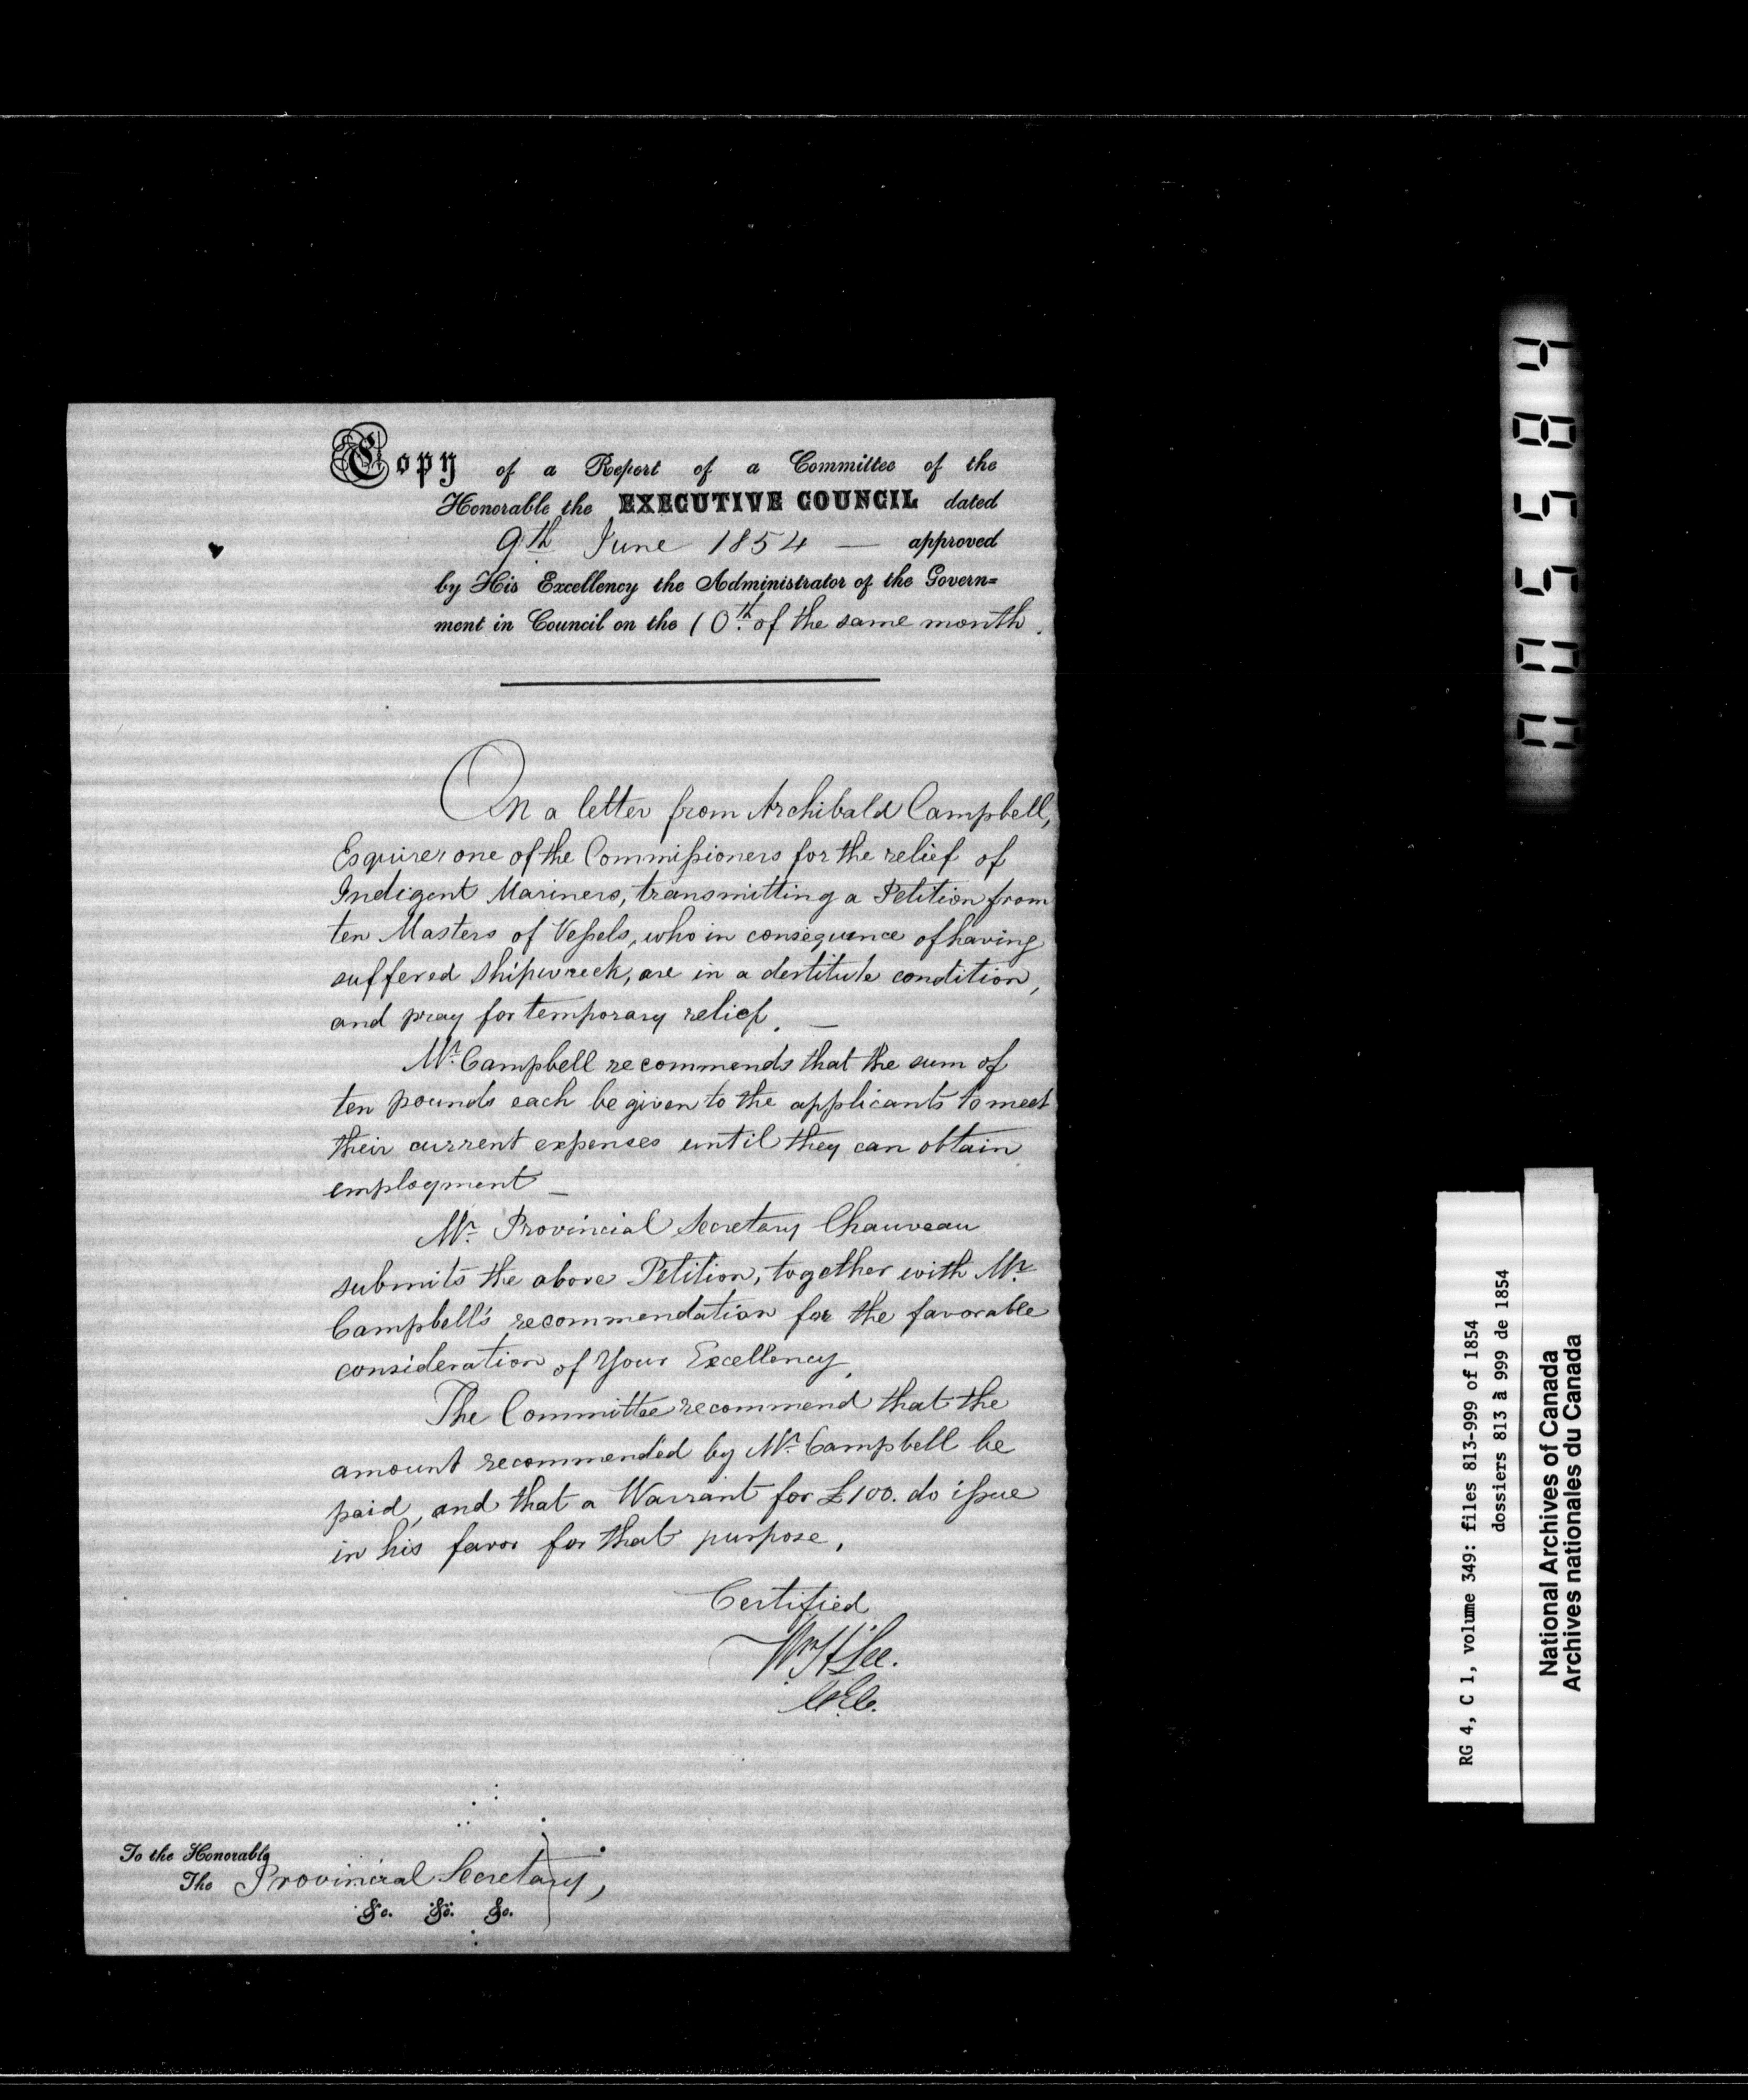 Copy of a Report of a Committee of the
Honorable the EXECUTIVE COUNCIL dated
9th June 1854 — approved
by His Excellency the Administrator of the Govern=
ment in Council on the 10th of the same month.
On a letter from Archibald Campbell,
Esquire, one of the Commissioners for the relief of
Indigent Mariners, transmitting a Petition from
ten Masters of Vessels, who in consequence of having
suffered shipwreck, are in a destitute condition,
and pray for temporary relief. —
Mr. Campbell recommends that the sum of
ten pounds each be given to the applicants to meet
their current expenses until they can obtain
employment —
Mr. Provincial Secretary Chauveau
submits the above Petition, together with Mr.
Campbell's recommendation for the favorable
consideration of Your Excellency.
The Committee recommend that the
amount recommended by Mr. Campbell be
paid, and that a Warrant for £100. do issue
in his favor for that purpose.
Certified
Wm H Lee.
C.E.C.
To the Honorable
The Provincial Secretary,
&c. &c. &c.
005584
RG 4, C 1, volume 349: files 813-999 of 1854
dossiers 813 à 999 de 1854
National Archives of Canada
Archives nationales du Canada